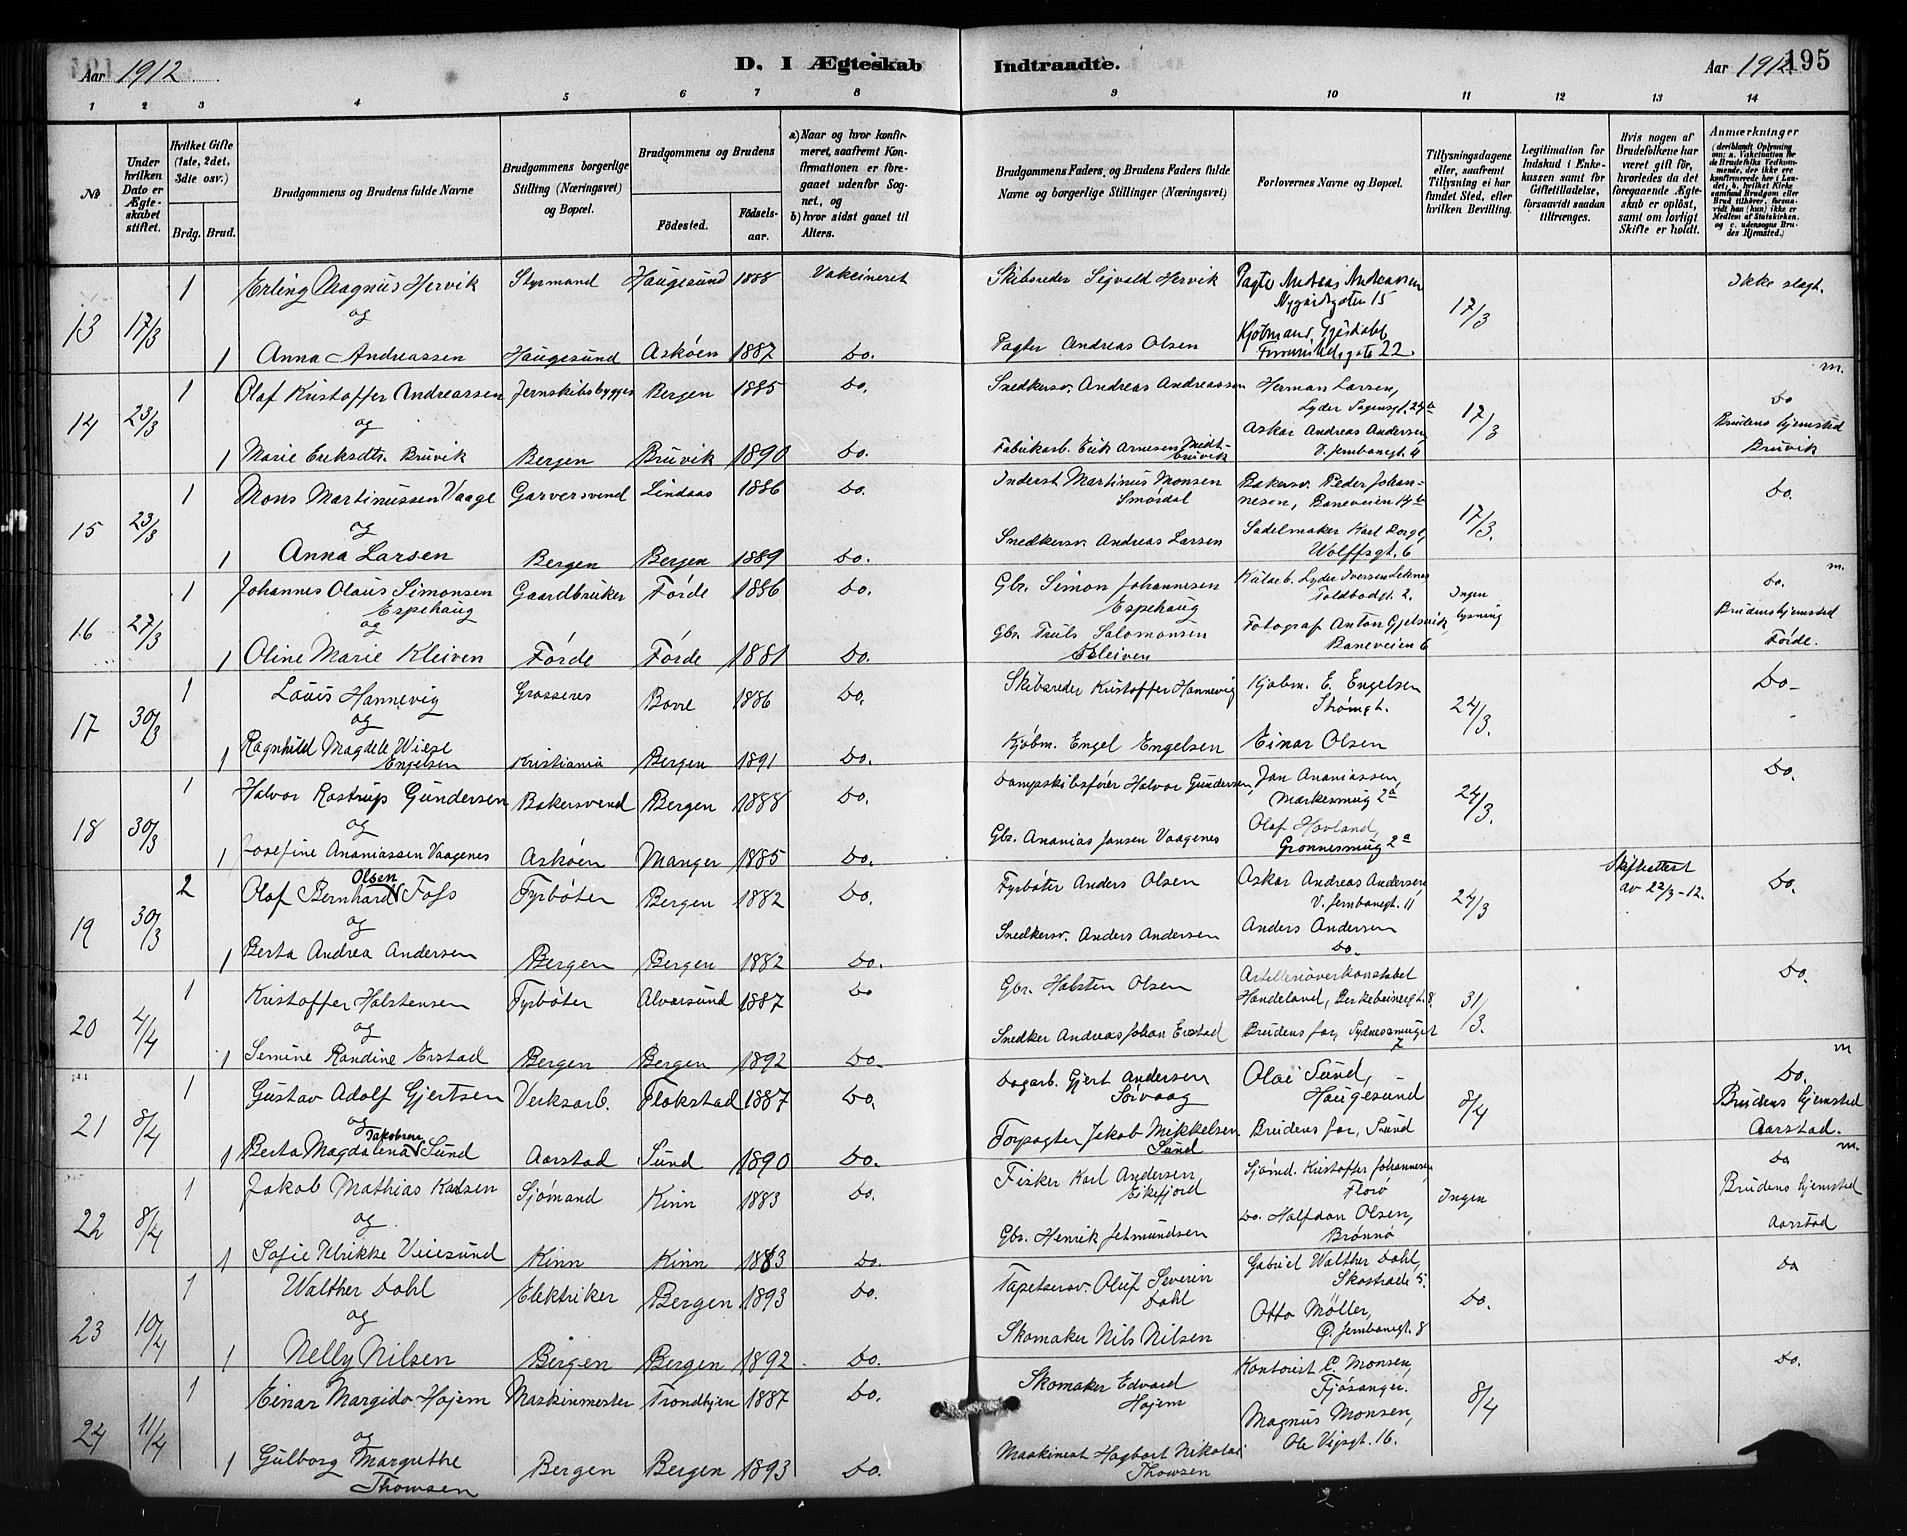 Aar 1912
D. I Ægteskab
Indtraadte.
Aar 1912
195
1 2 3 4 5 6 7 8 9 10 11 12 13 14
№
Under hvilken Dato er Ægteskabet stiftet.
Hvilket Gifte (1ste, 2det, 3die osv.)
Brdg. Brud.
Brudgommens og Brudens fulde Navne
Brudgommens borgerlige Stilling (Næringsvei) og Bopæl.
Brudgommens og Brudens
Fødested.
Fødselsaar.
a) Naar og hvor konfirmeret, saafremt Konfirmationen er foregaaet udenfor Sognet, og
b) hvor sidst gaaet til Alters.
Brudgommens Faders og Brudens Faders fulde Navne og borgerlige Stillinger (Næringsvei)
Forlovernes Navne og Bopæl.
Tillysningsdagene eller, saafremt Tillysning ei har fundet Sted, efter hvilken Bevilling.
Legitimation for Indskud i Enkekassen samt for Giftetilladelse, forsaavidt saadan tiltrænges.
Hvis nogen af Brudefolkene har været gift før, hvorledes da det foregaaende Ægteskab er opløst, samt om lovligt Skifte er holdt.
Anmærkninger
(deriblandt Oplysning om: a. Vakcination for de Brudefolks Vedkommende, der ikke ere konfirmerede her i Landet; b. hvilket Kirkesamfund Brudgom eller Brud tilhører, forsaavidt han (hun) ikke er Medlem af Statskirken, og c. udensogns Brudes Hjemsted.)
13 17/3 1 Erling Magnus Hervik Styrmand Haugesund 1888 Vakcineret Skibsreder Sigvald Hervik Pagter Andreas Andreassen Nygårdsgaten 15 17/3 Ikke slegt.
og
1 Anna Andreassen Haugesund Askøen 1887 Do. Pagter Andreas Olsen Kjøbmand 22.
14 23/3 1 Olaf Kristoffer Andreassen Jernskibsbygger Bergen 1885 Do. Snedkersv. Andreas Andreassen Herman Larsen, Lyder Sagensgt. 17/3 m. Do
og
1 Marie Eriksdtr. Bruvik Bergen Bruvik 1890 Do. Fabrikarb. Erik Arnesen Midt-Bruvik Askar Andreas Andersen V. Jernbanegt. Brudens hjemsted Bruvik
15 23/3 1 Mons Martinussen Vaage Garversvend Lindaas 1886 Do. Inderst Martinus Monsen Smørdal Bakersv. Peder Johannesen, Baneveien 14b 17/3. Do.
og
1 Anna Larsen Bergen Bergen 1889 Do. Snedkersv. Andreas Larsen Sadelmaker Karl Wolffsgt. 6
16 27/3 1 Johannes Olaus Simonsen Espehaug Gaardbruker Førde 1886 Do. Gbr. Simon Johannesen Espehaug Lyder Iversen Toldbodgt. 2. Ingen lysning m. Do.
og
1 Oline Marie Kleiven Førde Førde 1881 Do. Gbr. Truls Salomonsen Kleiven Fotograf Anton Gjelsvik, Baneveien 6 Brudens hjemsted Førde.
17 30/3 1 Louis Hannevig Grosserer Borre 1886 Do. Skibsreder Kristoffer Hannevig Kjøbm. E. Engelsen Strømgt. 24/3. Do
og
1 Ragnhild Magdele Wiese Engelsen Kristiania Bergen 1891 Do. Kjøbm. Engel Engelsen Einar Olsen
18 30/3 1 Halvor Rostrup Gundersen Bakersvend Bergen 1888 Do. Dampskibsfører Halvor Gundersen, Jan Ananiassen, Markesmug 2a 24/3. Do.
og
1 Josefine Ananiassen Vaagenes Askøen Manger 1885 Do. Gbr. Ananias Jansen Vaagenes Olaf Hovland, Grønnesmug 2a
19 30/3 2 Olaf Bernhard Olsen Foss Fyrbøter Bergen 1882 Do. Fyrbøter Anders Olsen Askar Andreas Andersen, V. Jernbanegt. 11 24/3 Skifteattest av 22/3-12. Do.
og
1 Berta Andrea Andersen Bergen Bergen 1882 Do. Snedkersv. Anders Andersen Anders Andersen Do.
20 4/4 1 Kristoffer Halstensen Fyrbøter Alversund 1887 Do Gbr. Halsten Olsen Artillerioverkonstabel Handeland, 8. 31/3. Do.
og
1 Semine Randine Erstad Bergen Bergen 1892 Do. Snedker Andreas Johan Erstad Brudens far, Sydnessmuget 7
21 8/4 1 Gustav Adolf Gjertsen Verksarb. Flekstad 1887 Do. Dagarb. Gjert Andersen Sørvaag Olai Sund, Haugesund 8/4 m Do.
og
1 Berta Magdalena Jakobsen Sund Aarstad Sund 1890 Do. Forpagter Jakob Mikkelsen Sund Brudens far, Sund Brudens hjemsted Aarstad.
22 8/4 1 Jakob Mathias Karlsen Sjømand Kinn 1883 Do. Fisker Karl Andersen Eikefjord Sjømd. Kristoffer Johannesen, Florø Ingen m. Do
og
1 Sofie Ulrikke Viiesund Kinn Kinn 1883 Do. Gbr. Henrik Jetmundsen Do. Halfdan Olsen, Brønnø Brudens hjemsted Aarstad
23 10/4 1 Walther Dahl Elektriker Bergen 1893 Do. Tapetserersv. Oluf Severin Dahl Gabriel Walther Dahl, Skostræde 5. Do. Do
og
1 Nelly Nilsen Bergen Bergen 1892 Do. Skomaker Nils Nilsen Otto Møller, Ø. Jernbanegt. 8
24 11/4 1 Einar Margido Højem Maskinmester Trondhjem 1887 Do. Skomaker Edvard Højem Kontorist C. Monsen, Fjøsanger. 8/4 Do.
og
1 Gulborg Margrethe Thowsen Bergen Bergen 1893 Do. Maskinest Hagbart Nikolai Thowsen Magnus Monsen, Ole Vigsgt. 16.